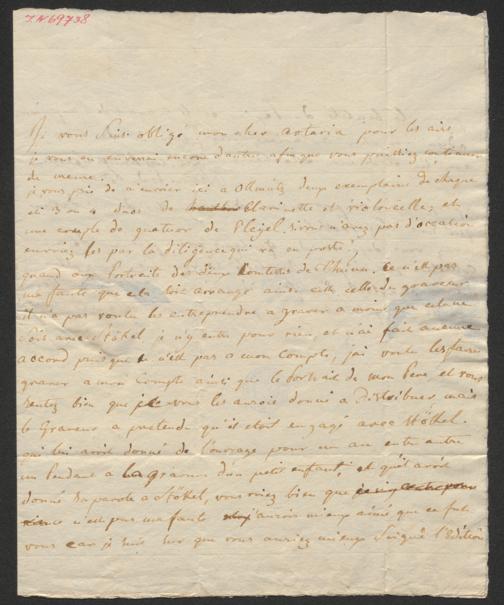 I.N 69738
Je vous suis obligé mon cher artaria pour les airs
je vous en enverrai encore d'autres afin que vous puissiez continuer
de meme.
je vous prie de m'envoier ici a Ollmütz deux exemplaires de chaque
et 3 ou 4 duos de Clarinette et violoncelle, et
une couple de quatuor de Pleÿel, si vous n'avez pas d'occasion
envoiez les par la diligence qui va en poste.
quand aux Portraits des deux Comtesses de ce n'est pas
ma faute que cela soit arrangé ainsi c'est celle du graveur
il n'a pas voulu les entreprendre a graver a moins que cela ne
soit avec Stökel, je n'y entre pour rien, et n'ai fait aucune
accord puisque ce n'est pas a mon Compte, j'ai voulu les faire
graver a mon Compte ainsi que le Portrait de mon Pere, et vous
sentez bien que je vous les aurois donné a Distribuer mais
le Graveur a pretendu qu'il etoit engagé avec Stökel.
qui lui avoit donné de l'ouvrage pour un an entre autre
un Pendant a la gravure d'un petit enfant, et qu'il avoit
donné sa parole a Stökel, vous voiez bien que
ce n'est pas ma faute j'aurois mieux aimé que ce fut
vous car je suis sur que vous auriez mieux soigné l'Edition